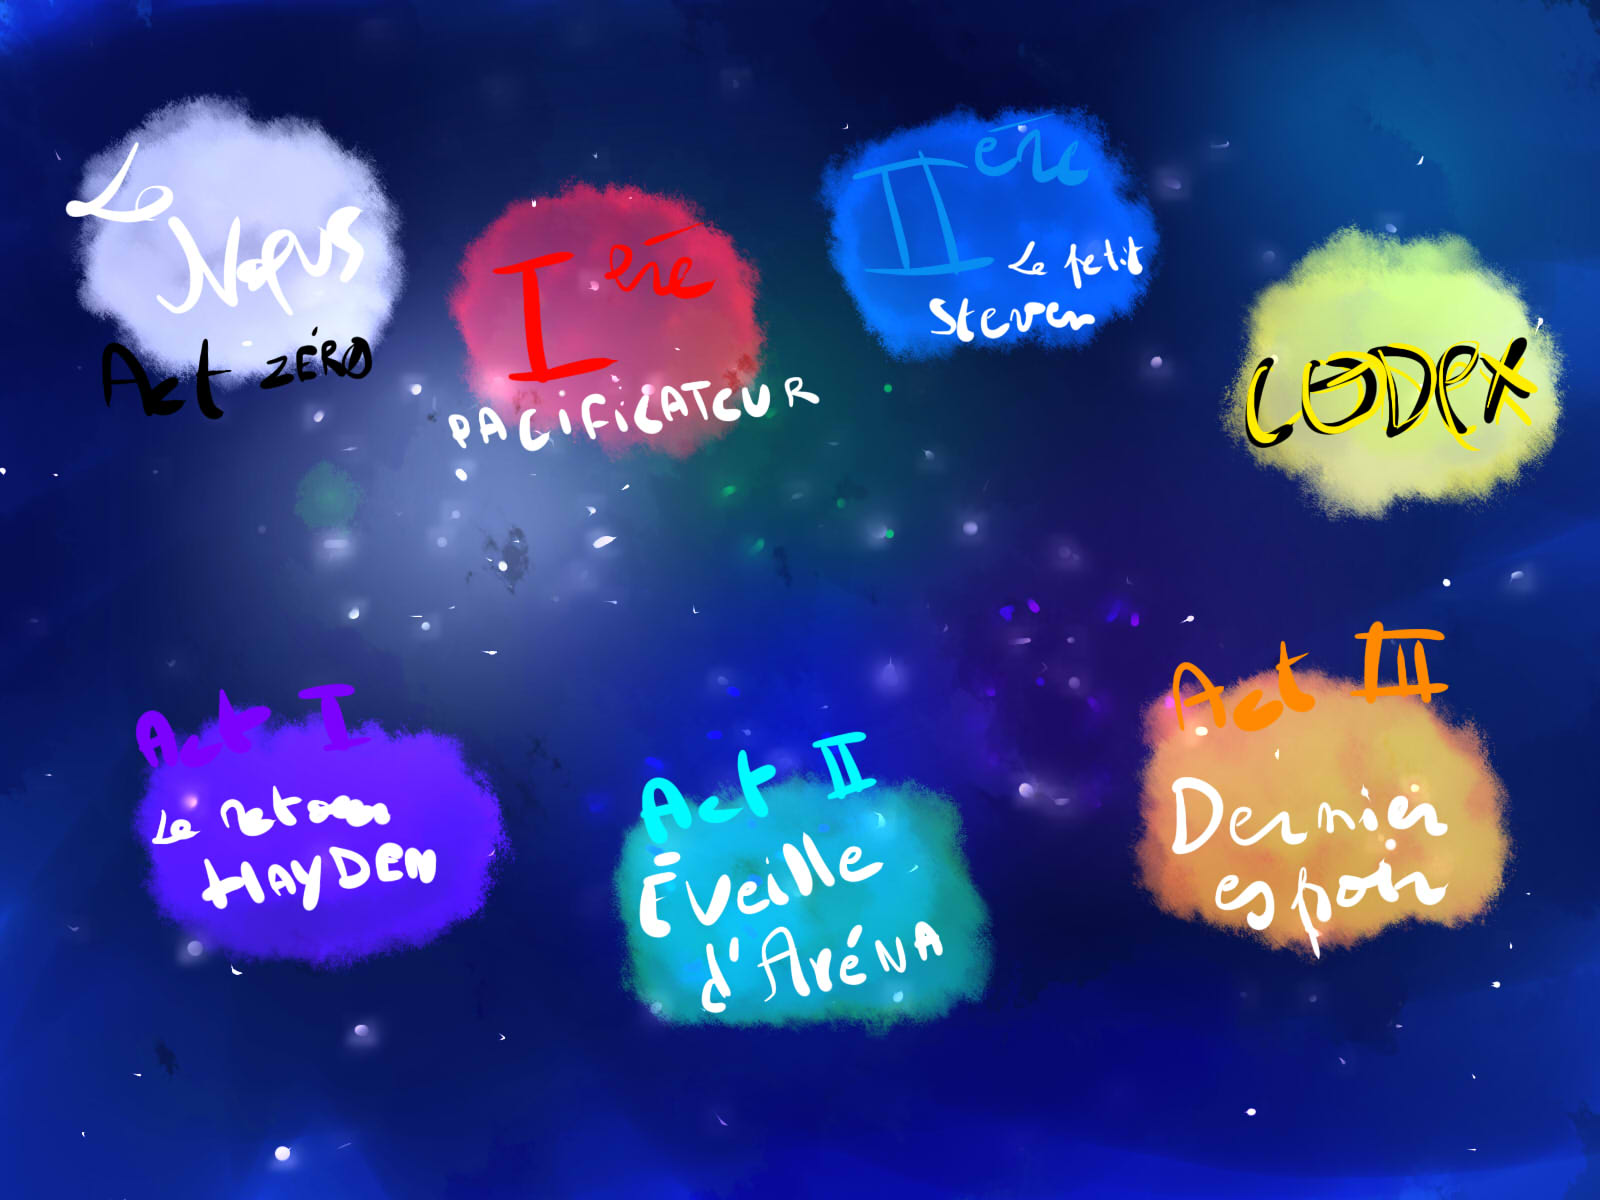 Le
Nexus
Act ZÉRO
I ère
PACIFICATEUR
II ère
Le petit
Steven
CODEX
Act I
Le retour
HAYDEN
Act II
Éveille
d'Aréna
Act III
Dernier
espoir